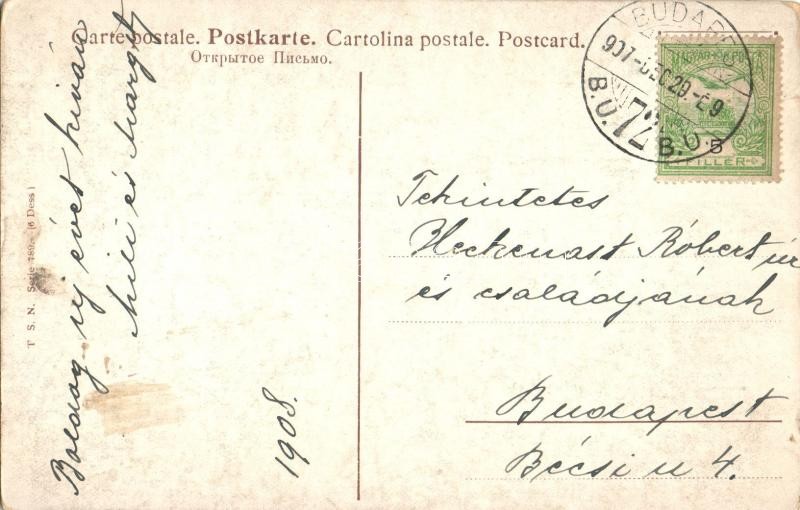 Carte postale. Postkarte. Cartolina postale. Postcard.
Открытое Письмо.
BUDAPEST
907-DEC29-É9
B.U.72.B.U.
MAGYAR
5
FILLÉR
T. S. N. Serie 789. (6 Dess)
Boldog új évet kiván
Mili és Margit
1908.
Tekintetes
Heckenast Róbert úr
és családjának
Budapest
Bécsi u 4.